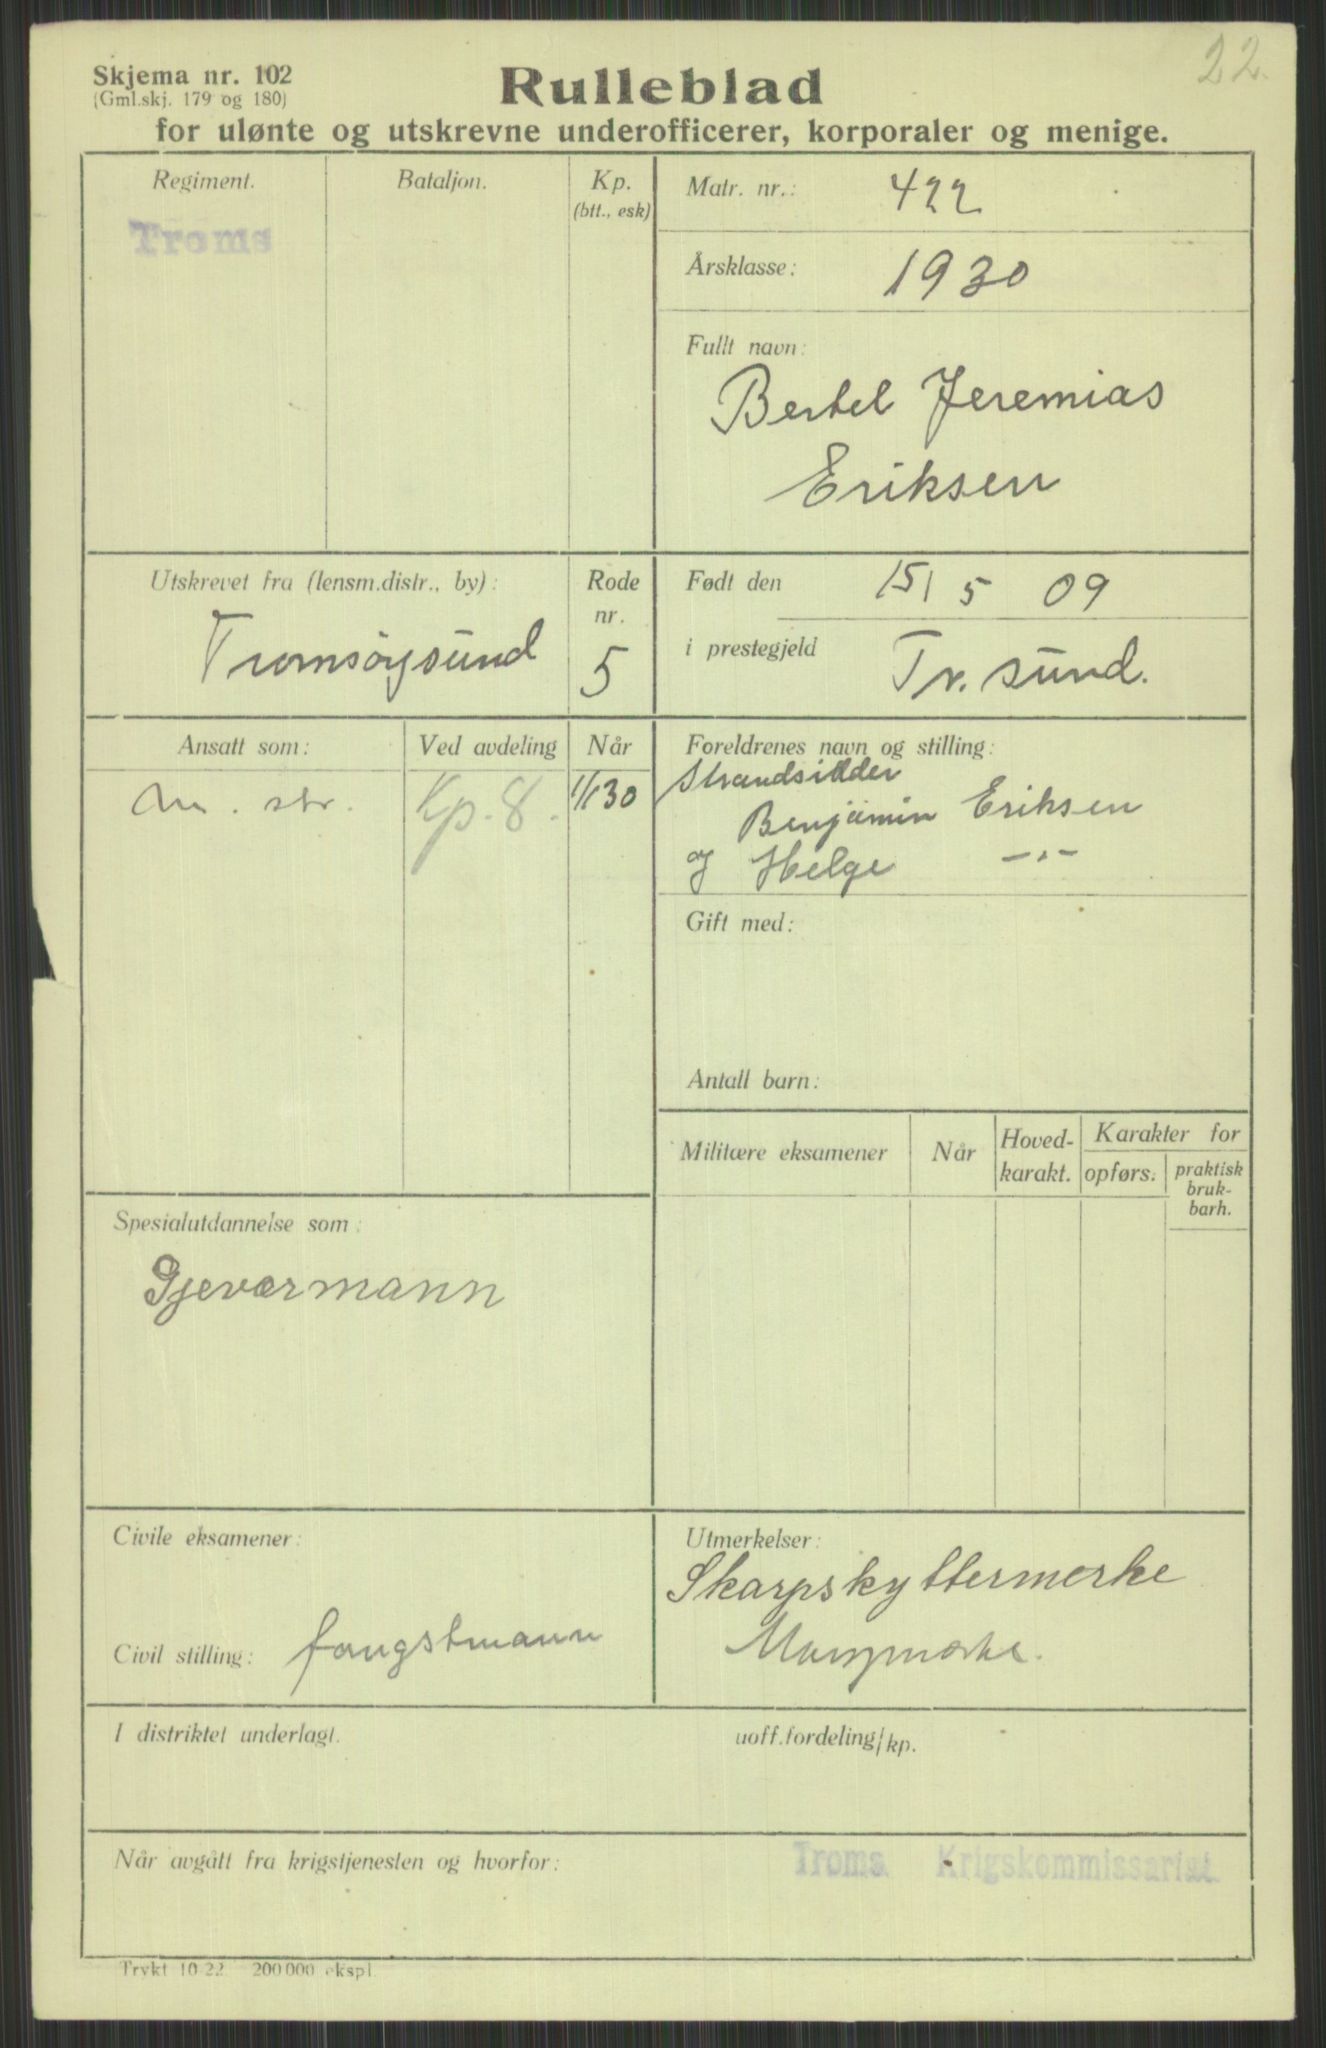 22.
Skjema nr. 102
(Gml.skj. 179 og 180)
Rulleblad
for ulønte og utskrevne underofficerer, korporaler og menige.
Regiment.
Troms
Bataljon.
Kp.
(btt., esk)
Matr. nr.: 422
Årsklasse: 1930
Fullt navn:
Bertel Jeremias
Eriksen
Utskrevet fra (lensm.distr., by):
Tromsöysund
Rode
nr.
5
Født den 15/5 09
i prestegjeld Tr. sund.
Ansatt som:
m. str.
Ved avdeling
Kp. 8.
Når
1/1 30
Foreldrenes navn og stilling:
Strandsidder
Benjamin Eriksen
og Helge -"-
Gift med:
Antall barn:
Militære eksamener
Når
Hoved-
karakt.
Karakter for
opførs.
praktisk
bruk-
barh.
Spesialutdannelse som:
Gjeværmann
Civile eksamener:
Civil stilling: fangstmann
Utmerkelser:
Skarpskyttermerke
I distriktet underlagt.
uoff.fordeling/kp.
Når avgått fra krigstjenesten og hvorfor:
Troms Krigskommissariat
Trykt 10-22 200 000 ekspl.